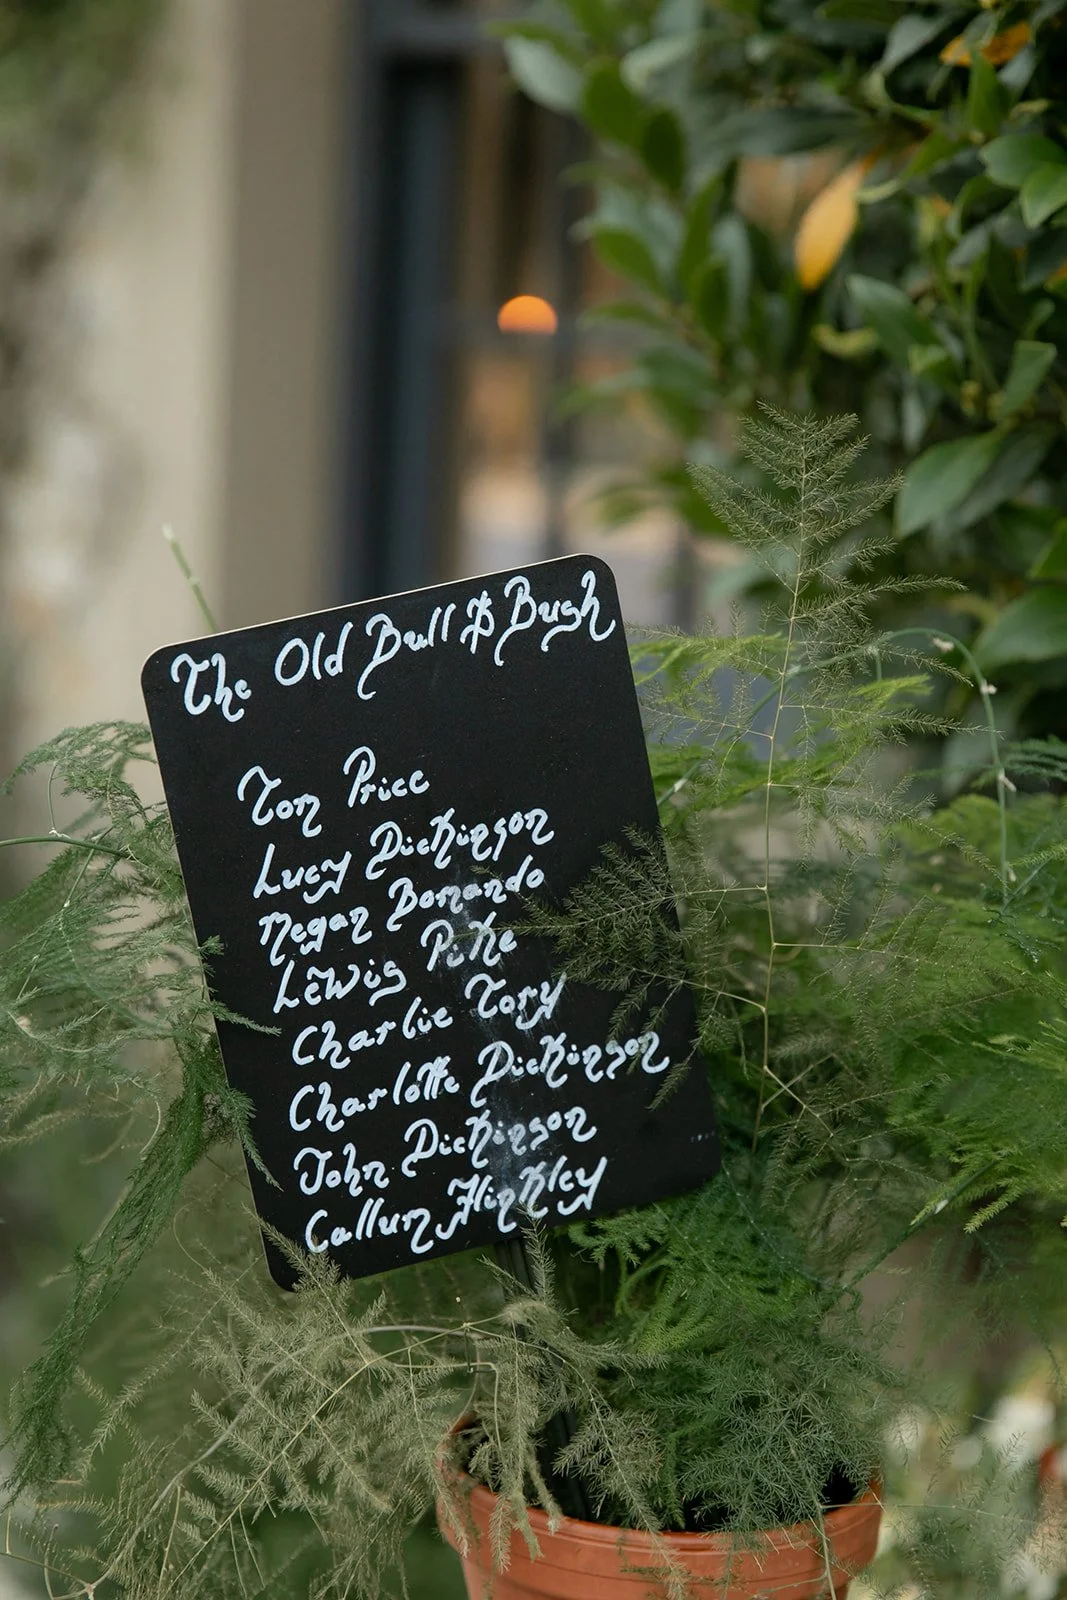 The Old Bull & Bush
Tom Price
Lucy Dickinson
Megan Bomando
Lewis Pike
Charlie Tory
Charlotte Dickinson
John Dickinson
Callum Hinkley